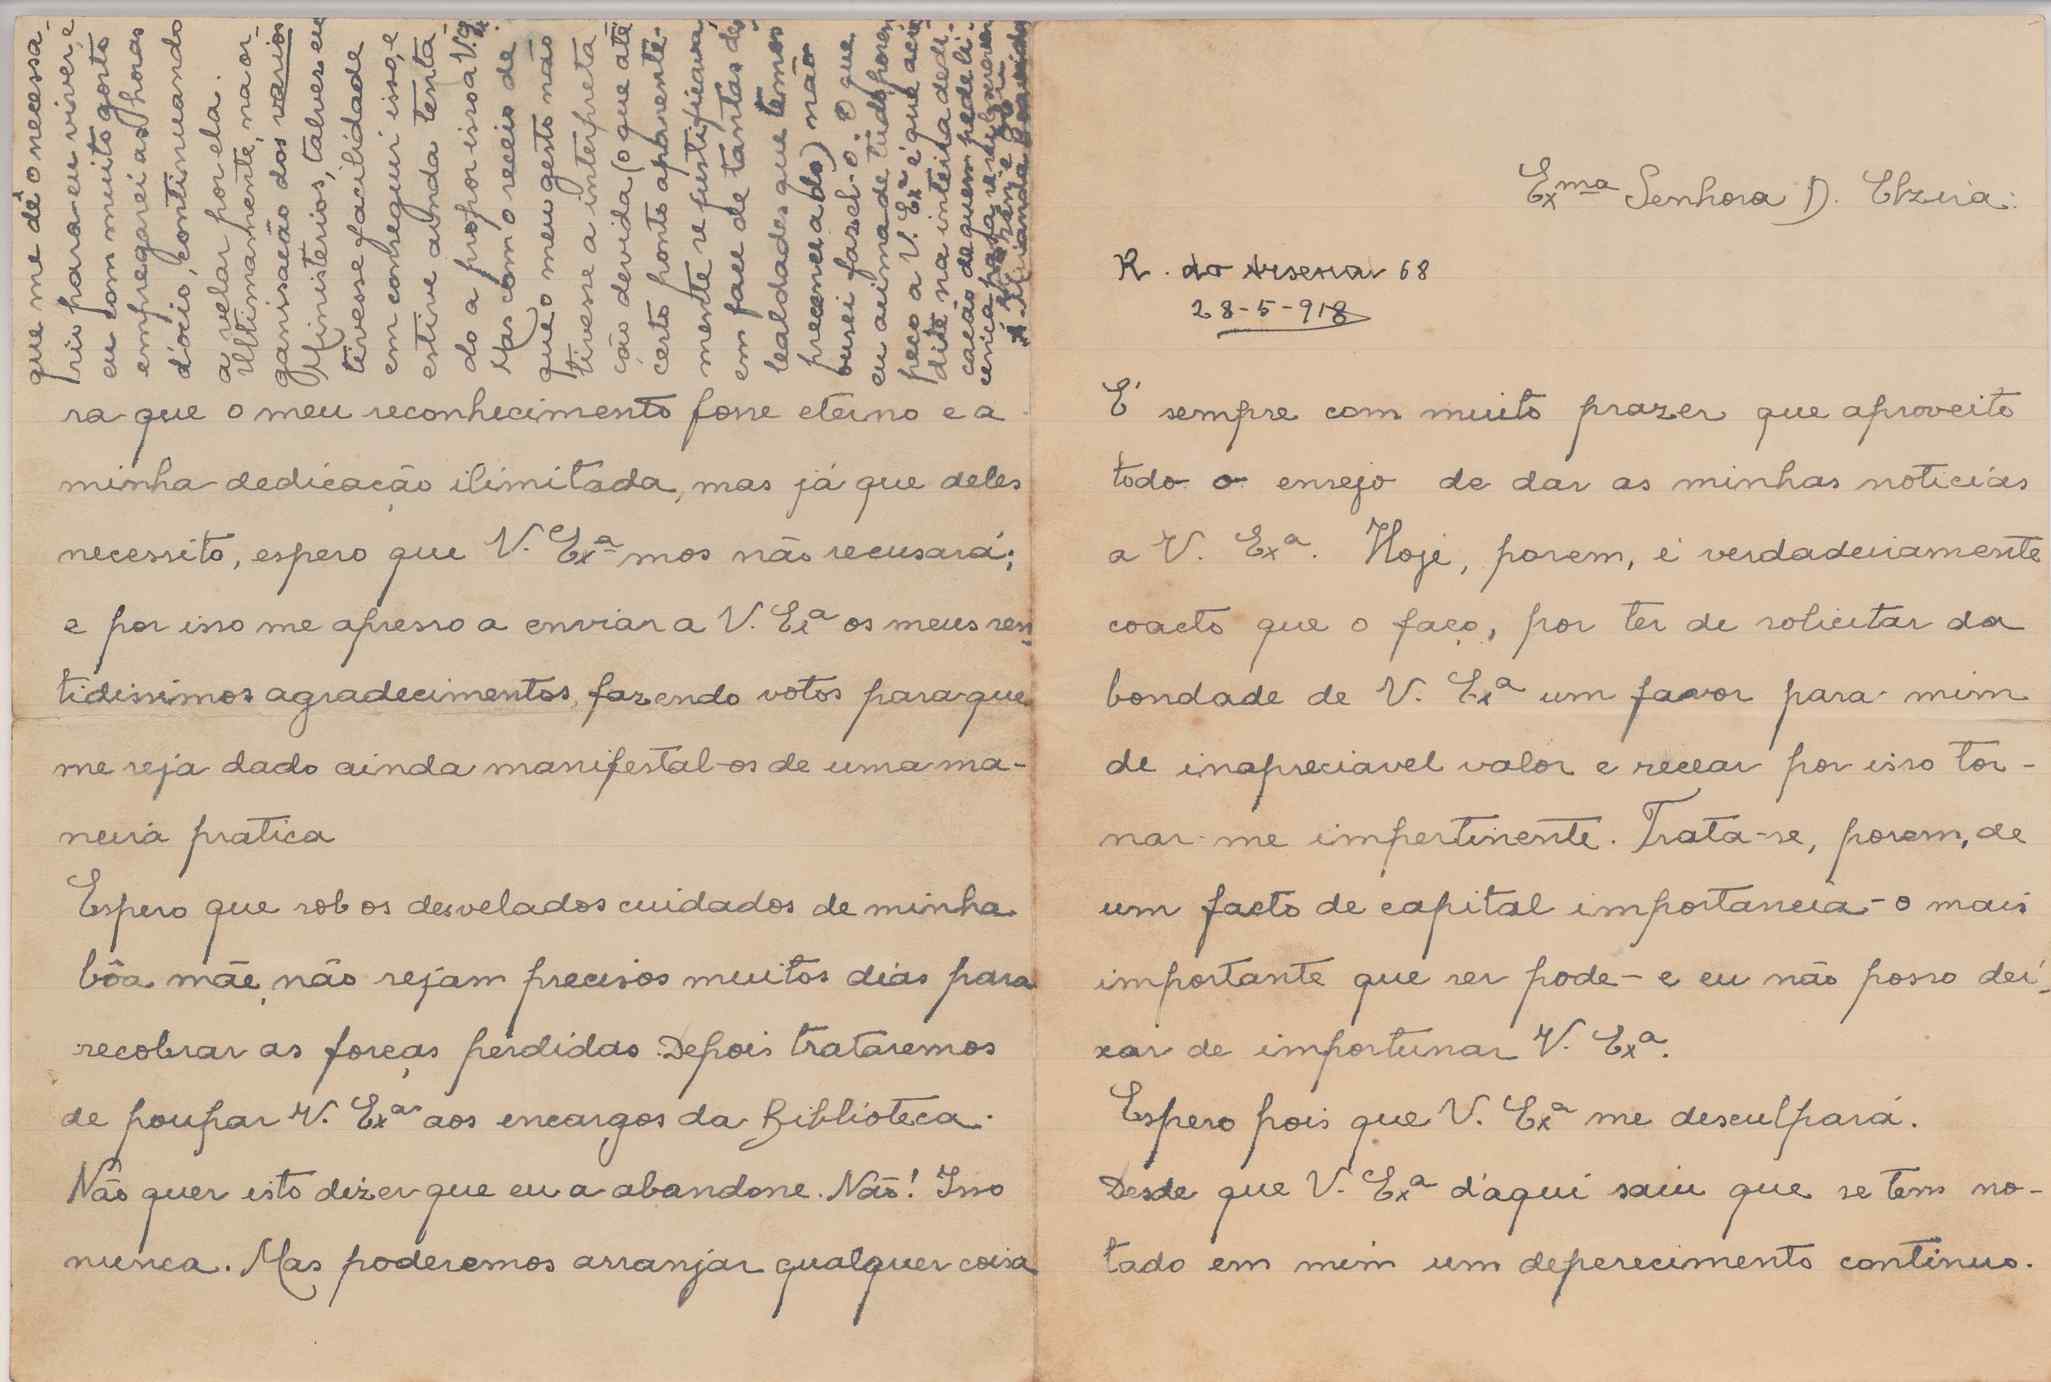 Exma Senhora D. Elzira:
R. do Arsenal 68
28-5-918
É sempre com muito prazer que aproveito
todo o ensejo de dar as minhas noticias
a V. Exa. Hoje, porem, é verdadeiramente
coacto que o faço, por ter de solicitar da
bondade de V. Exa um favor para mim
de inapreciavel valor e recear por isso tor-
nar-me impertinente. Trata-se, porem, de
um facto de capital importancia - o mais
importante que ser pode - e eu não posso dei-
xar de importunar V. Exa.
Espero pois que V. Exa me desculpará.
Desde que V. Exa d'aqui saiu que se tem no-
tado em mim um deperecimento continuo.
ra que o meu reconhecimento fosse eterno e a
minha dedicação ilimitada, mas já que deles
necessito, espero que V. Exa mos não recusará;
e por isso me apresso a enviar a V. Exa os meus sen-
tidissimos agradecimentos, fazendo votos para que
me seja dado ainda manifestal-os de uma ma-
neira pratica
Espero que sob os desvelados cuidados de minha
bôa mãe, não sejam precisos muitos dias para
recobrar as forças perdidas. Depois trataremos
de poupar V. Exa aos encargos da Biblioteca.
Não quer isto dizer que eu a abandone. Não! Isso
nunca. Mas poderemos arranjar qualquer coisa
que me dê o necessa-
rio para eu viver, e
eu com muito gosto
empregarei as horas
d'ocio, continuando
a velar por ela.
Ultimamente, na or-
ganisação dos varios
Ministerios, talvez eu
tivesse facilidade
em conseguir isso, e
estive ainda tenta-
do a propor isso a V. Exa
Mas com o receio de
que o meu gesto não
tivesse a interpreta-
ção devida (o que até
certo ponto aparente-
mente se justificava,
em face de tantas des-
lealdades que temos
presenceado) não
ousei fazel-o. O que
eu acima de tudo porem
peço a V. Exa é que acre-
dite na inteira dedi-
cação de quem pede li-
cença para se subscrever
A. Miranda